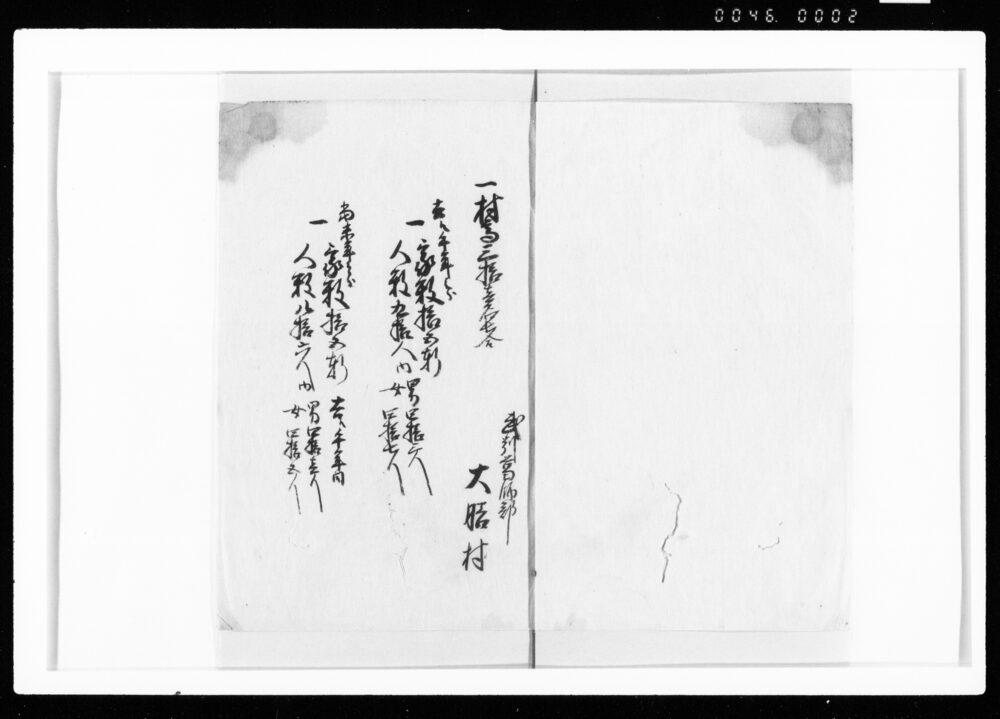 0046. 0002
武州葛飾郡
大膳村
一村高三拾壱石七合
去ル午年分
一家数拾五軒
一人数九拾人内
男四拾三人
女四拾七人
当未年分
一家数拾五軒 去ル午年同
一人数八拾六人内
男四拾壱人
女四拾五人